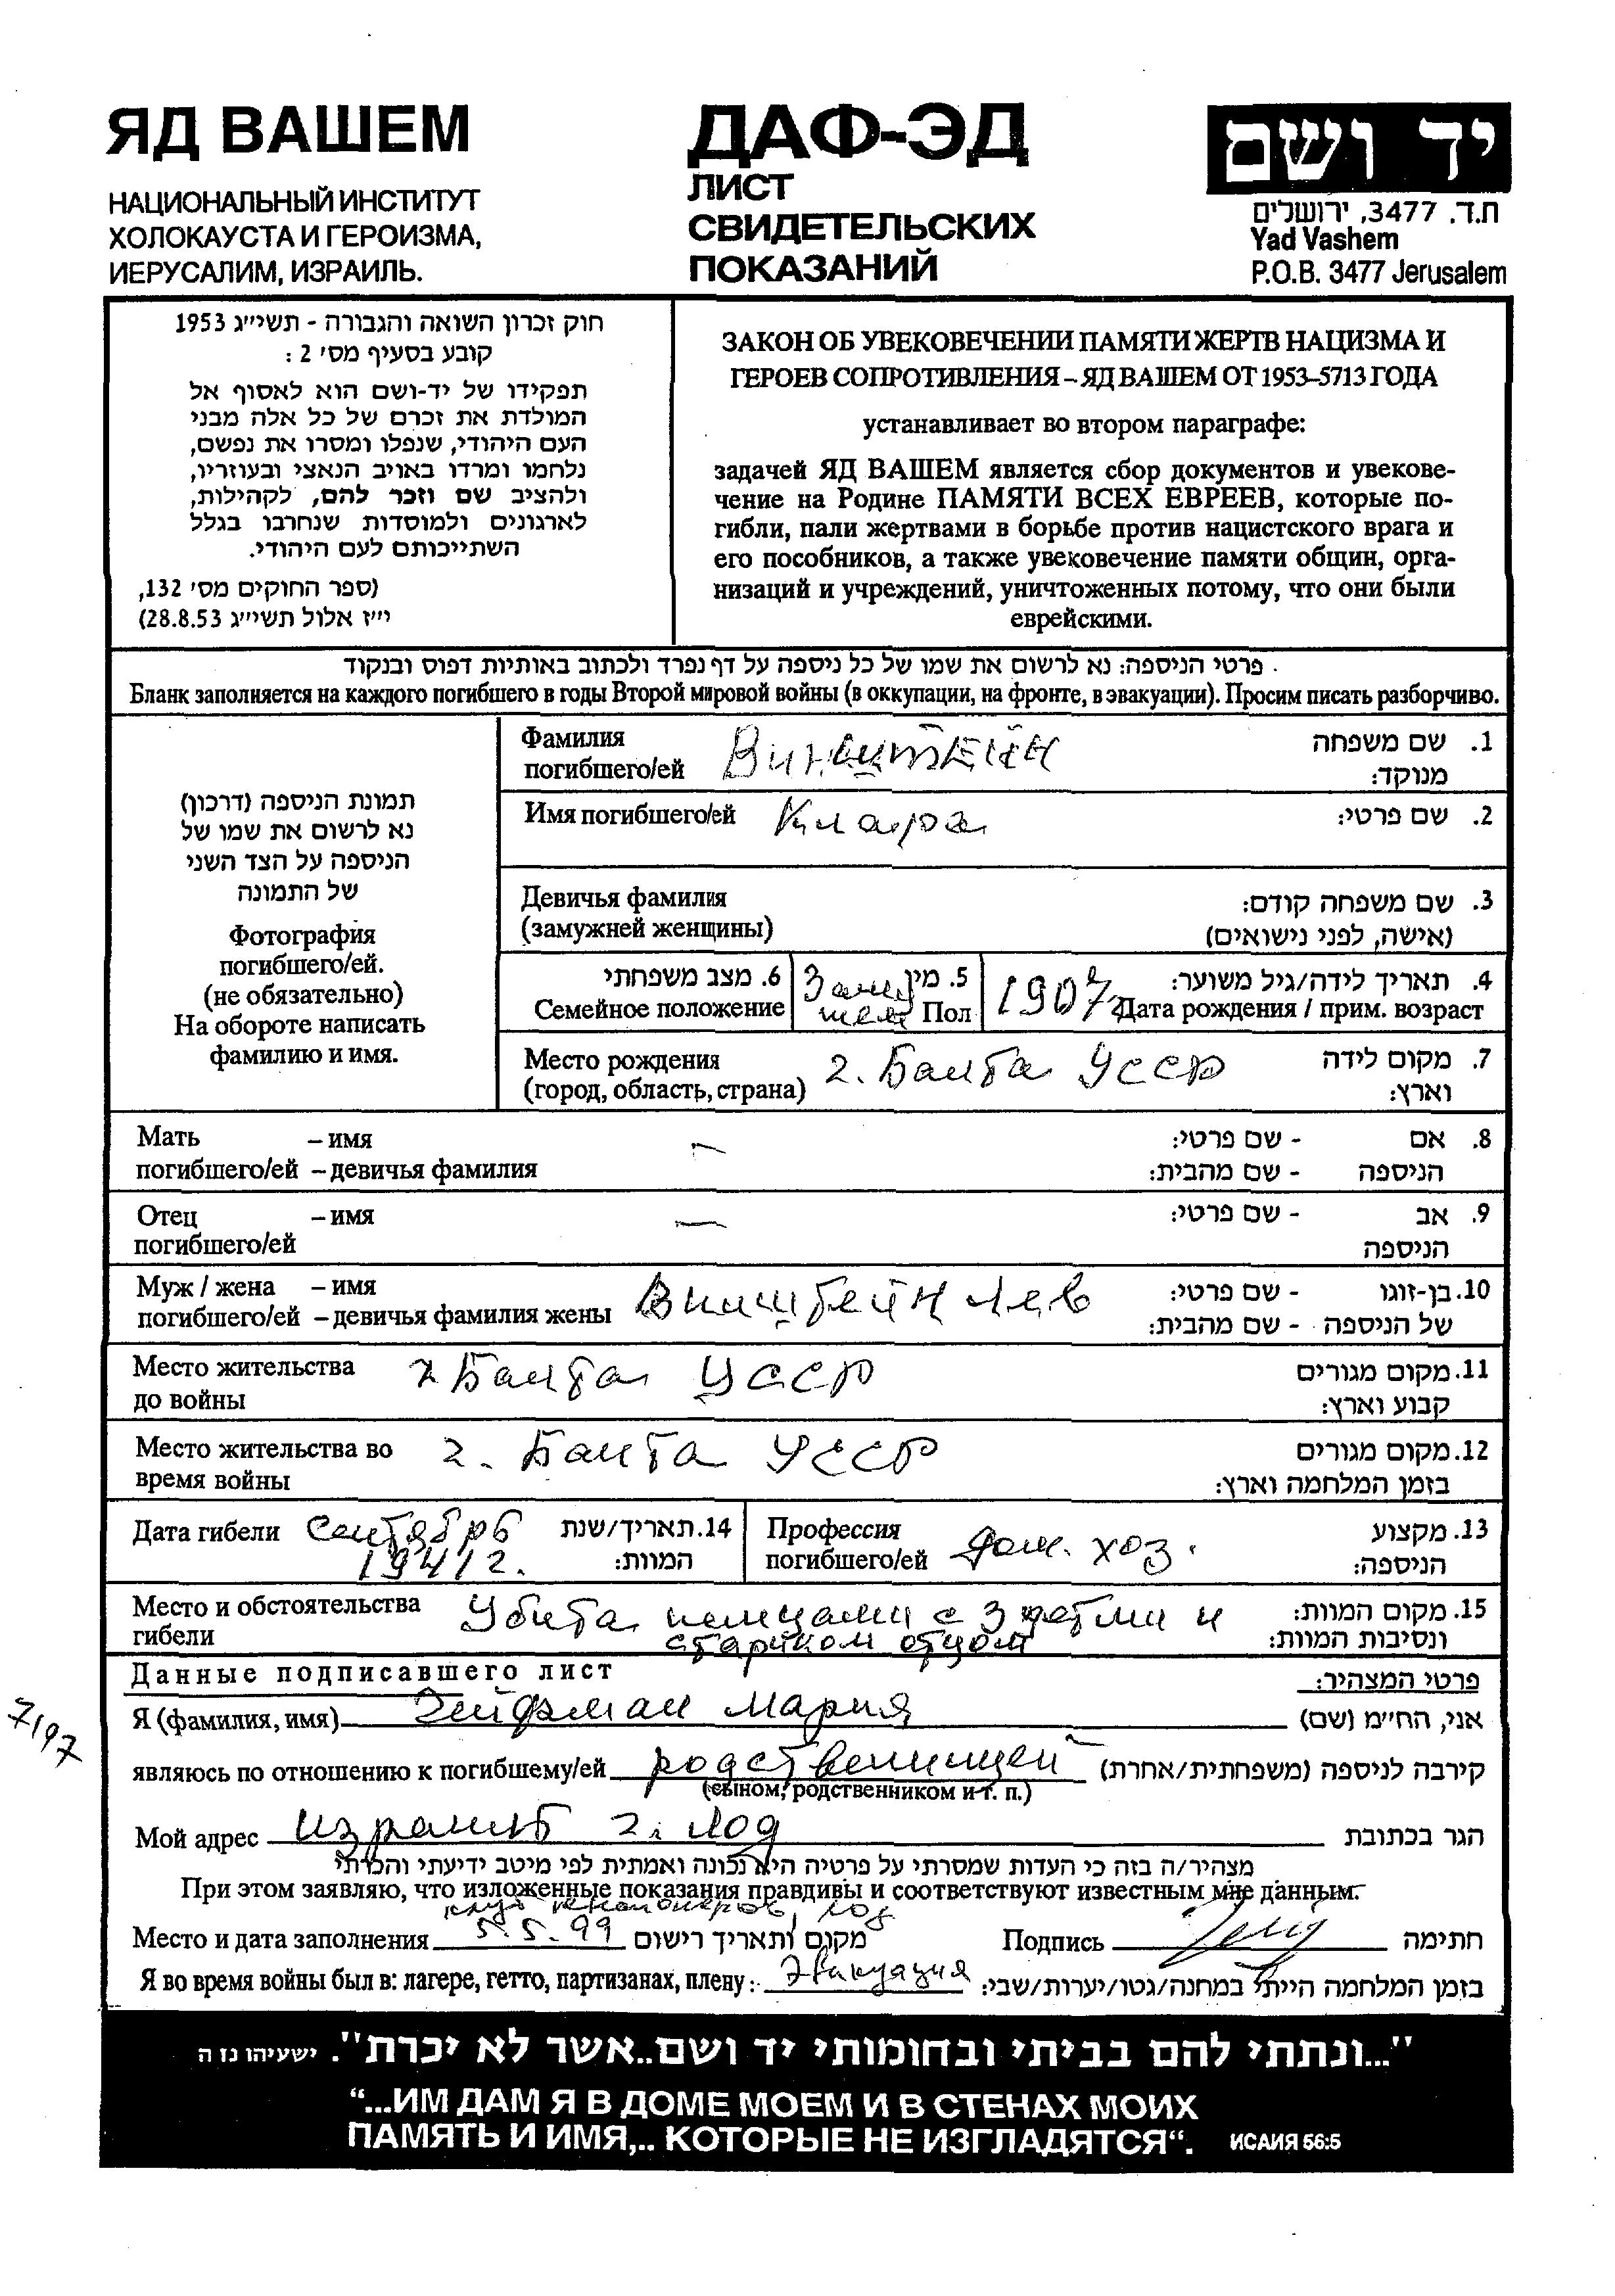 ЯД ВАШЕМ
НАЦИОНАЛЬНЫЙ ИНСТИТУТ
ХОЛОКАУСТА И ГЕРОИЗМА,
ИЕРУСАЛИМ, ИЗРАИЛЬ.
ДАФ-ЭД
ЛИСТ
СВИДЕТЕЛЬСКИХ
ПОКАЗАНИЙ
יד ושם
ת.ד. 3477, ירושלים
Yad Vashem
P.O.B. 3477 Jerusalem
חוק זכרון השואה והגבורה - תשי״ג 1953
קובע בסעיף מס׳ 2 :
תפקידו של יד-ושם הוא לאסוף אל
המולדת את זכרם של כל אלה מבני
העם היהודי, שנפלו ומסרו את נפשם,
נלחמו ומרדו באויב הנאצי ובעוזריו,
ולהציב שם וזכר להם, לקהילות,
לארגונים ולמוסדות שנחרבו בגלל
השתייכותם לעם היהודי.
(ספר החוקים מס׳ 132,
י״ז אלול תשי״ג 28.8.53)
ЗАКОН ОБ УВЕКОВЕЧЕНИИ ПАМЯТИ ЖЕРТВ НАЦИЗМА И
ГЕРОЕВ СОПРОТИВЛЕНИЯ – ЯД ВАШЕМ ОТ 1953–5713 ГОДА
устанавливает во втором параграфе:
задачей ЯД ВАШЕМ является сбор документов и увекове-
чение на Родине ПАМЯТИ ВСЕХ ЕВРЕЕВ, которые по-
гибли, пали жертвами в борьбе против нацистского врага и
его пособников, а также увековечение памяти общин, орга-
низаций и учреждений, уничтоженных потому, что они были
еврейскими.
פרטי הניספה: נא לרשום את שמו של כל ניספה על דף נפרד ולכתוב באותיות דפוס ובנקוד
Бланк заполняется на каждого погибшего в годы Второй мировой войны (в оккупации, на фронте, в эвакуации). Просим писать разборчиво.
תמונת הניספה (דרכון)
נא לרשום את שמו של
הניספה על הצד השני
של התמונה
Фотография
погибшего/ей.
(не обязательно)
На обороте написать
фамилию и имя.
Фамилия Винштейн שם משפחה .1
погибшего/ей מנוקד:
Имя погибшего/ей Клара שם פרטי: .2
Девичья фамилия שם משפחה קודם: .3
(замужней женщины) (אישה, לפני נישואים)
6. מצב משפחתי 5. מין 1907 תאריך לידה/גיל משוער: .4
Семейное положение Пол Дата рождения / прим. возраст
Место рождения г. Балта УССР מקום לידה .7
(город, область, страна) וארץ:
Мать – имя אם - שם פרטי: .8
погибшего/ей – девичья фамилия הניספה - שם מהבית:
Отец – имя אב - שם פרטי: .9
погибшего/ей הניספה
Муж / жена – имя Винштейн Лев בן-זוגו - שם פרטי: .10
погибшего/ей – девичья фамилия жены של הניספה - שם מהבית:
Место жительства г Балта УССР מקום מגורים .11
до войны קבוע וארץ:
Место жительства во г. Балта УССР מקום מגורים .12
время войны בזמן המלחמה וארץ:
Дата гибели Сентябрь 14. תאריך/שנת
1941 г. המוות:
Профессия дом. хоз. מקצוע .13
погибшего/ей הניספה:
Место и обстоятельства Убита немцами с 3 детми и מקום המוות: .15
гибели стариком отцом ונסיבות המוות:
Данные подписавшего лист פרטי המצהיר:
Я (фамилия, имя) Зейфман Мария אני, הח״מ (שם)
7/97
являюсь по отношению к погибшему/ей родственницей קירבה לניספה (משפחתית/אחרת)
(сыном, родственником и т. п.)
Мой адрес Израиль г. Лод הגר בכתובת
מצהיר/ה בזה כי העדות שמסרתי על פרטיה היא נכונה ואמתית לפי מיטב ידיעתי והכרתי
При этом заявляю, что изложенные показания правдивы и соответствуют известным мне данным.
клуб пенсионеров, Лод
Место и дата заполнения 5.5.99 מקום ותאריך רישום Подпись חתימה
Я во время войны был в: лагере, гетто, партизанах, плену: Эвакуация בזמן המלחמה הייתי במחנה/גטו/יערות/שבי:
"...ונתתי להם בביתי ובחומותי יד ושם..אשר לא יכרת". ישעיהו נו ה
“...ИМ ДАМ Я В ДОМЕ МОЕМ И В СТЕНАХ МОИХ
ПАМЯТЬ И ИМЯ,.. КОТОРЫЕ НЕ ИЗГЛАДЯТСЯ“. ИСАИЯ 56:5